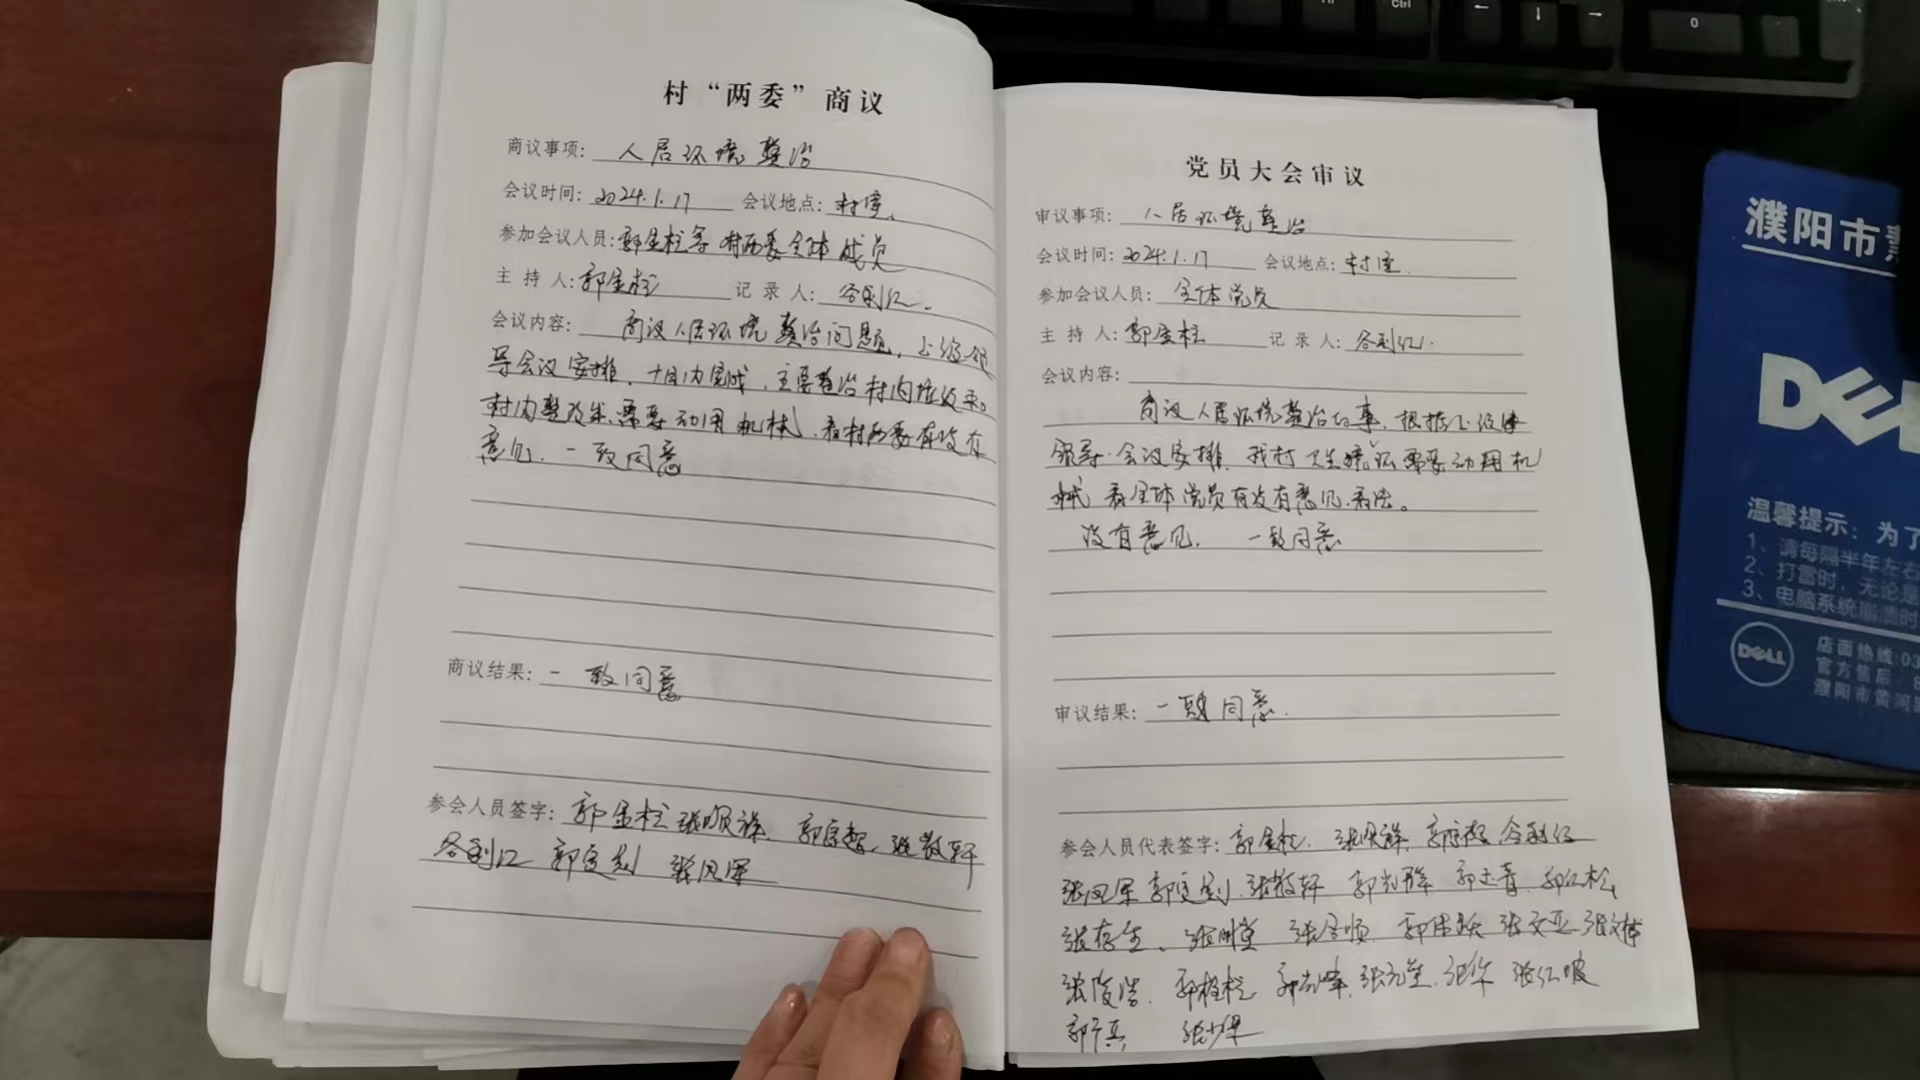 村“两委”商议
商议事项: 人居环境整治
会议时间: 2024.1.17 会议地点: 村室.
参加会议人员: 郭金柱等村两委全体成员
主持人: 郭金柱 记录人: 谷利红.
会议内容: 商议人居环境整治问题, 上级领
导会议安排, 十日内完成, 主要整治村内
村内整改需要动用机械, 看村两委有没有
意见. 一致同意
商议结果: 一致同意
参会人员签字: 郭金柱 张顺祥. 张敬轩
谷利红 张凤军
党员大会审议
审议事项: 人居环境整治
会议时间: 2024.1.17 会议地点: 村室.
参加会议人员: 全体党员
主持人: 郭金柱 记录人: 谷利红.
会议内容:
商议人居环境整治的事, 根据上级
领导会议安排, 我村卫生环境需要动用机
械 看全体党员有没有意见.看法。
没有意见. 一致同意
审议结果: 一致同意.
参会人员代表签字: 郭金柱. 张顺祥. 谷利红
张凤军 张敬轩 郭光辉
张存生、 张明堂 张文亚
张俊浩.
濮阳市
DELL
温馨提示: 为了
1、请每隔半年左右
2、打雷时, 无论是
3、电脑系统崩溃时
DELL
店面热线:03
官方售后: 8
濮阳市黄河
Ctrl
0